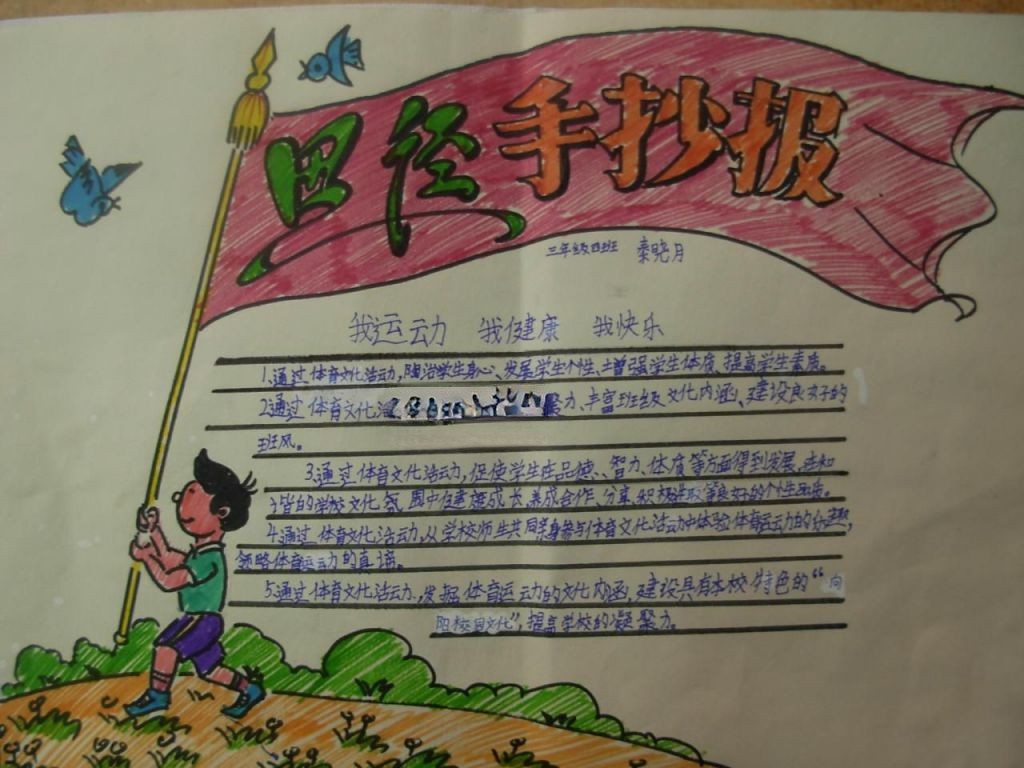 田径 手抄报
三年级四班 秦晓月
我运动 我健康 我快乐
1.通过体育文化活动,陶冶学生身心、发展学生个性、增强学生体质、提高学生素质。
2.通过体育文化活 力、丰富班级文化内涵、建设良好的
班风。
3.通过体育文化活动,促使学生在品德、智力、体质等方面得到发展,在和
谐的学校文化氛围中健康成长,养成合作、分享、积极进取等良好的个性品质。
4.通过体育文化活动,从学校师生共同亲身参与体育文化活动中体验体育运动的乐趣,
领略体育运动的真谛。
5.通过体育文化活动,发掘体育运动的文化内涵,建设具有本校特色的“向
阳校园文化”,提高学校的凝聚力。